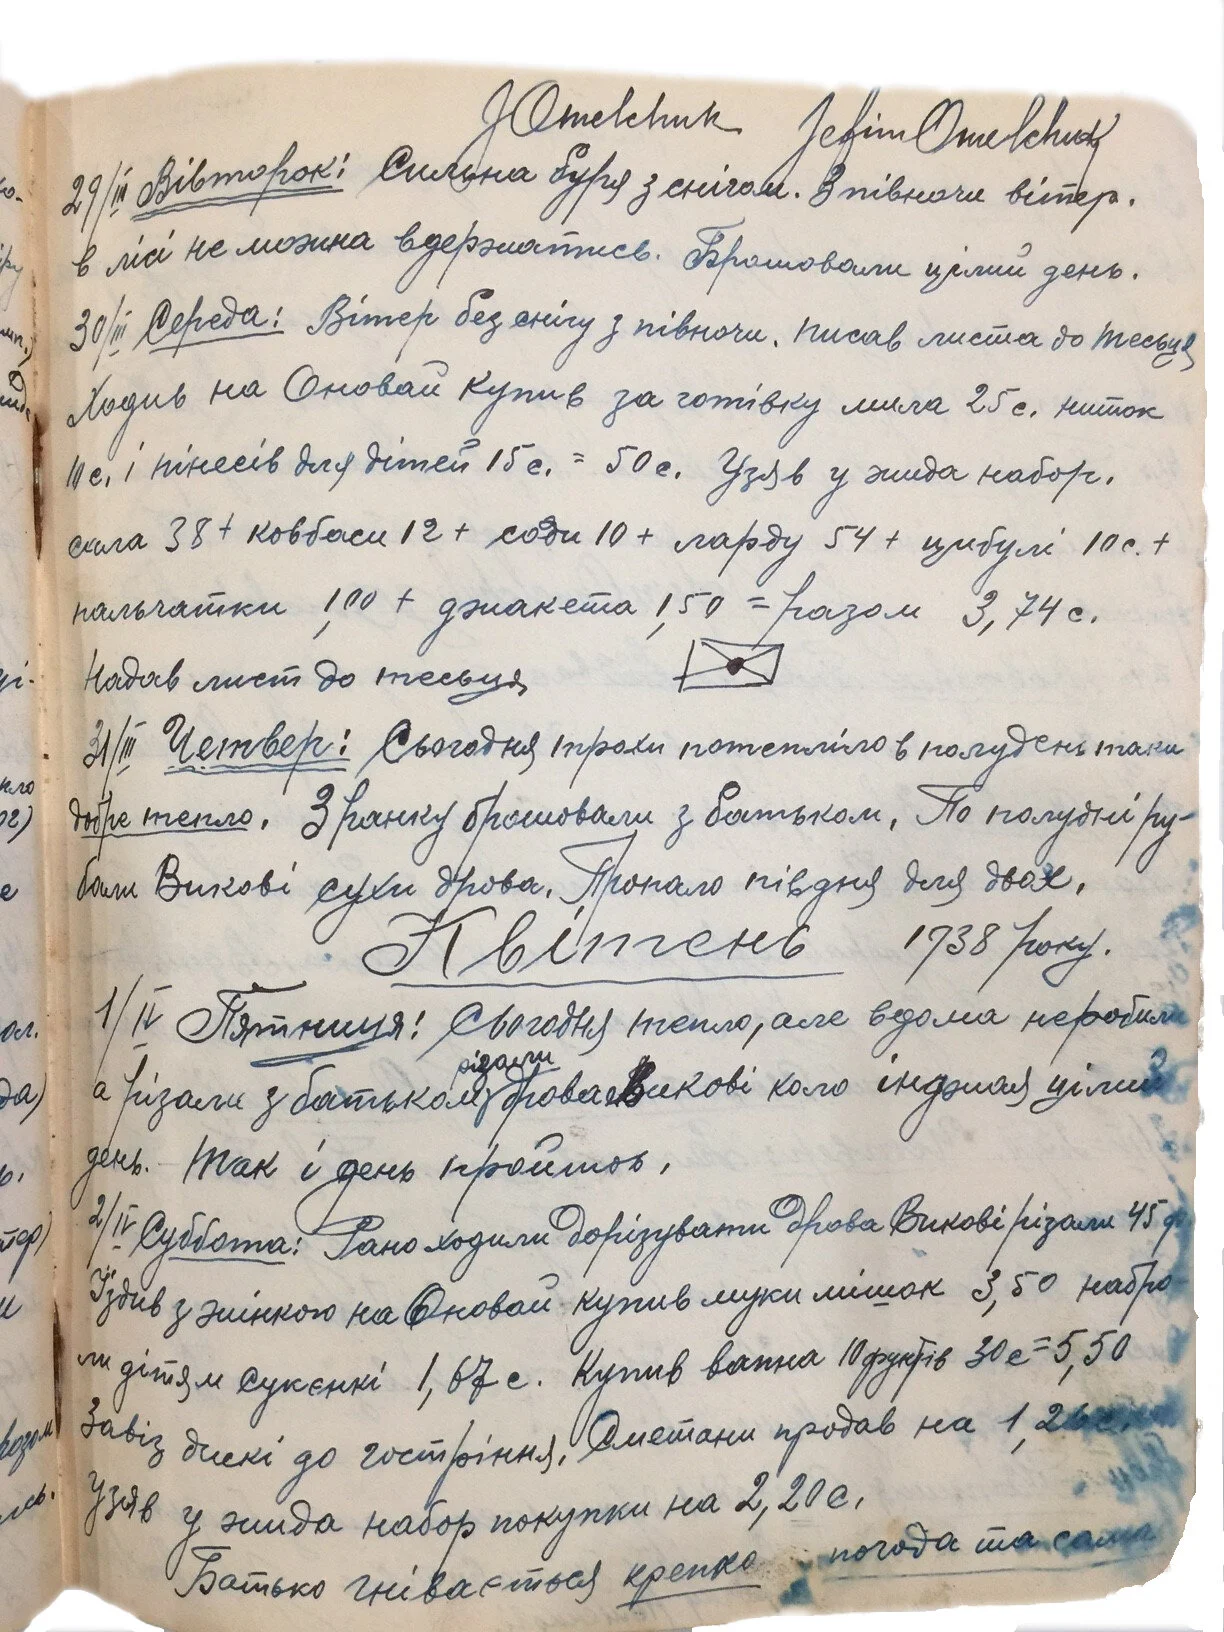 JOmelchuk Jefim Omelchuk
29/III Вівторок: Сильна буря з снігом. З півночи вітер.
в лісі не можна вдержатись. Брошовали цілий день.
30/III Середа: Вітер без снігу з півночи. писав листа до тесьця
Ходив на Оновай купив за готівку мила 25с. ниток
10с. і пінесів для дітей 15с. = 50с. Узяв у жида набор.
сила 38 + ковбаси 12 + соди 10 + ларду 54 + цибулі 10с. +
пальчатки 1,00 + джакета 1,50 = разом 3,74с.
Надав лист до тесьця
31/III Четвер: Сьогодня трохи потепліло в полудень таки
добре тепло. З ранку брошовали з батьком. По полудні ру-
бали Викові сухи дрова. Пропало півдня для двох.
Квітень 1938 року.
1/IV Пятниця: Сьогодня тепло, але вдома не робили
різали
а різали з батьком дрова Викові коло інджая цілий
день. Так і день пройшов.
2/IV Суббота: Рано ходили дорізувати дрова Викові різали 45 ф
Їздив з жінкою на Оновай купив муки мішок 3,50 набра-
ли дітям сукєнкі 1,67с. Купив вапна 10 фунтів 30с = 5,50
Завіз дискі до гостріння. Сметани продав на 1,26с.
Узяв у жида набор покупки на 2,20с.
Батько гнівається крепко погода та сама